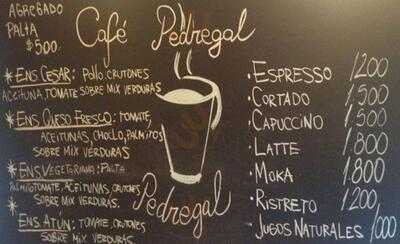 AGREGADO
PALTA
$500.
Café Pedregal
* ENS CESAR: POLLO, CRUTONES
ACEITUNA TOMATE SOBRE MIX VERDURAS
* ENS QUESO FRESCO: TOMATE,
ACEITUNAS, CHOCLO, PALMITOS
SOBRE MIX VERDURAS
* ENS VEGETARIANA: PALTA
PALMITO TOMATE, ACEITUNAS, CRUTONES
SOBRE MIX VERDURAS.
* ENS ATÚN: TOMATE, CRUTONES
SOBRE MIX VERDURAS
Pedregal
· ESPRESSO 1200
· CORTADO 1,500
· CAPUCCINO 1,500
· LATTE 1.800
· MOKA 1.800
· RISTRETO 1200
· JUGOS NATURALES 1000